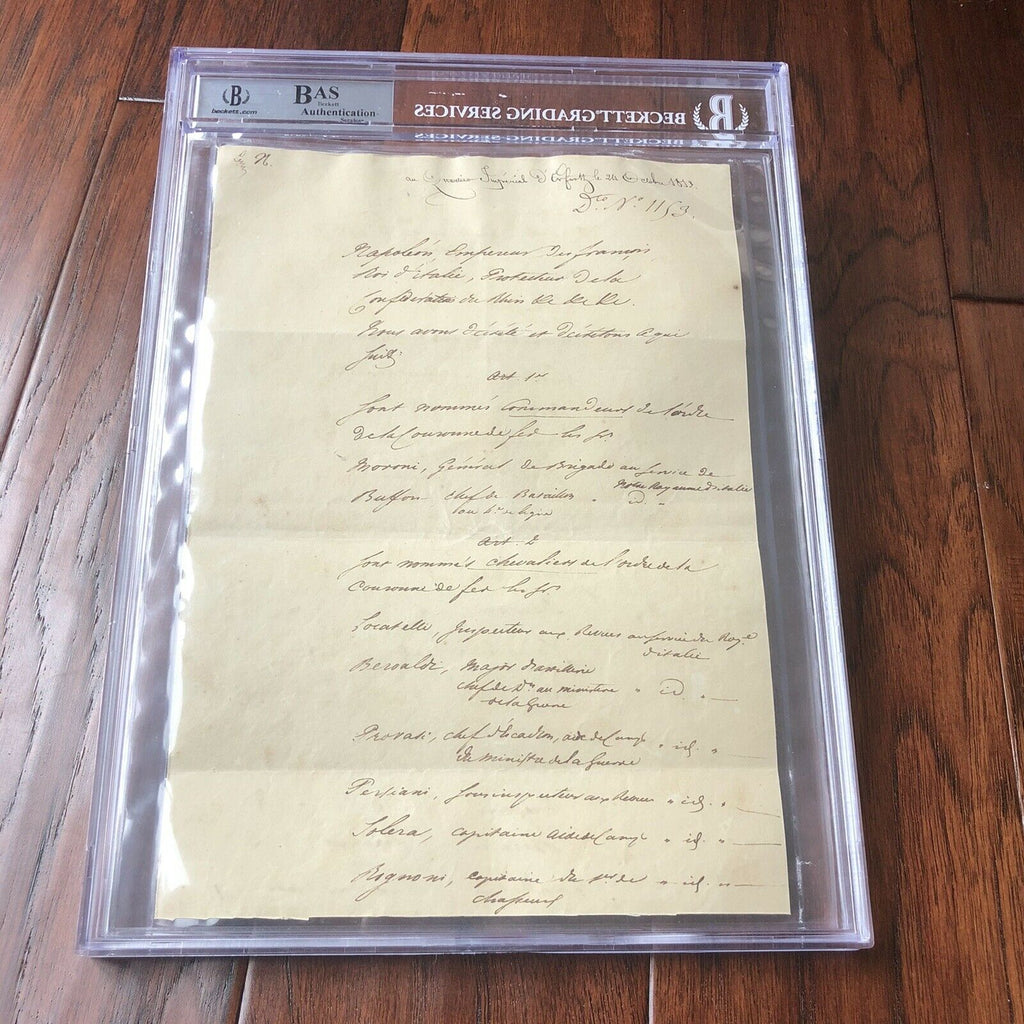 B
beckett.com
BAS
Beckett
Authentication
Services
BECKETT GRADING SERVICES
B
N.
au Quartier Impérial d'Erfurth le 24 Octobre 1813.
Dto No 1153.
Napoléon, Empereur des français
Roi d'italie, Protecteur de la
Confédération du Rhin &e &e &e.
Nous avons décrété et décrétons ce que
suit:
Art. 1er
Sont nommés Commandeurs de l'ordre
de la Couronne de fer les Srs
Moroni, Général de Brigade au service de
notre Royaume d'italie
Buffon chef de Bataillon " id. "
de ligne
Art. 2
Sont nommés chevaliers de l'ordre de la
Couronne de fer les Srs
Locatelle, Inspecteur aux Revues au service du Roye
d'italie
Beroaldi, Major d'artillerie
chef de Don au ministère " id. "
de la Guerre
Provasi, chef d'escadron, aide de Camp " id. "
du ministre de la Guerre
Persiani, sous inspecteur aux Revues " id. "
Solera, capitaine aide de Camp " id. "
Rognoni, capitaine du 1er de " id. "
chasseurs